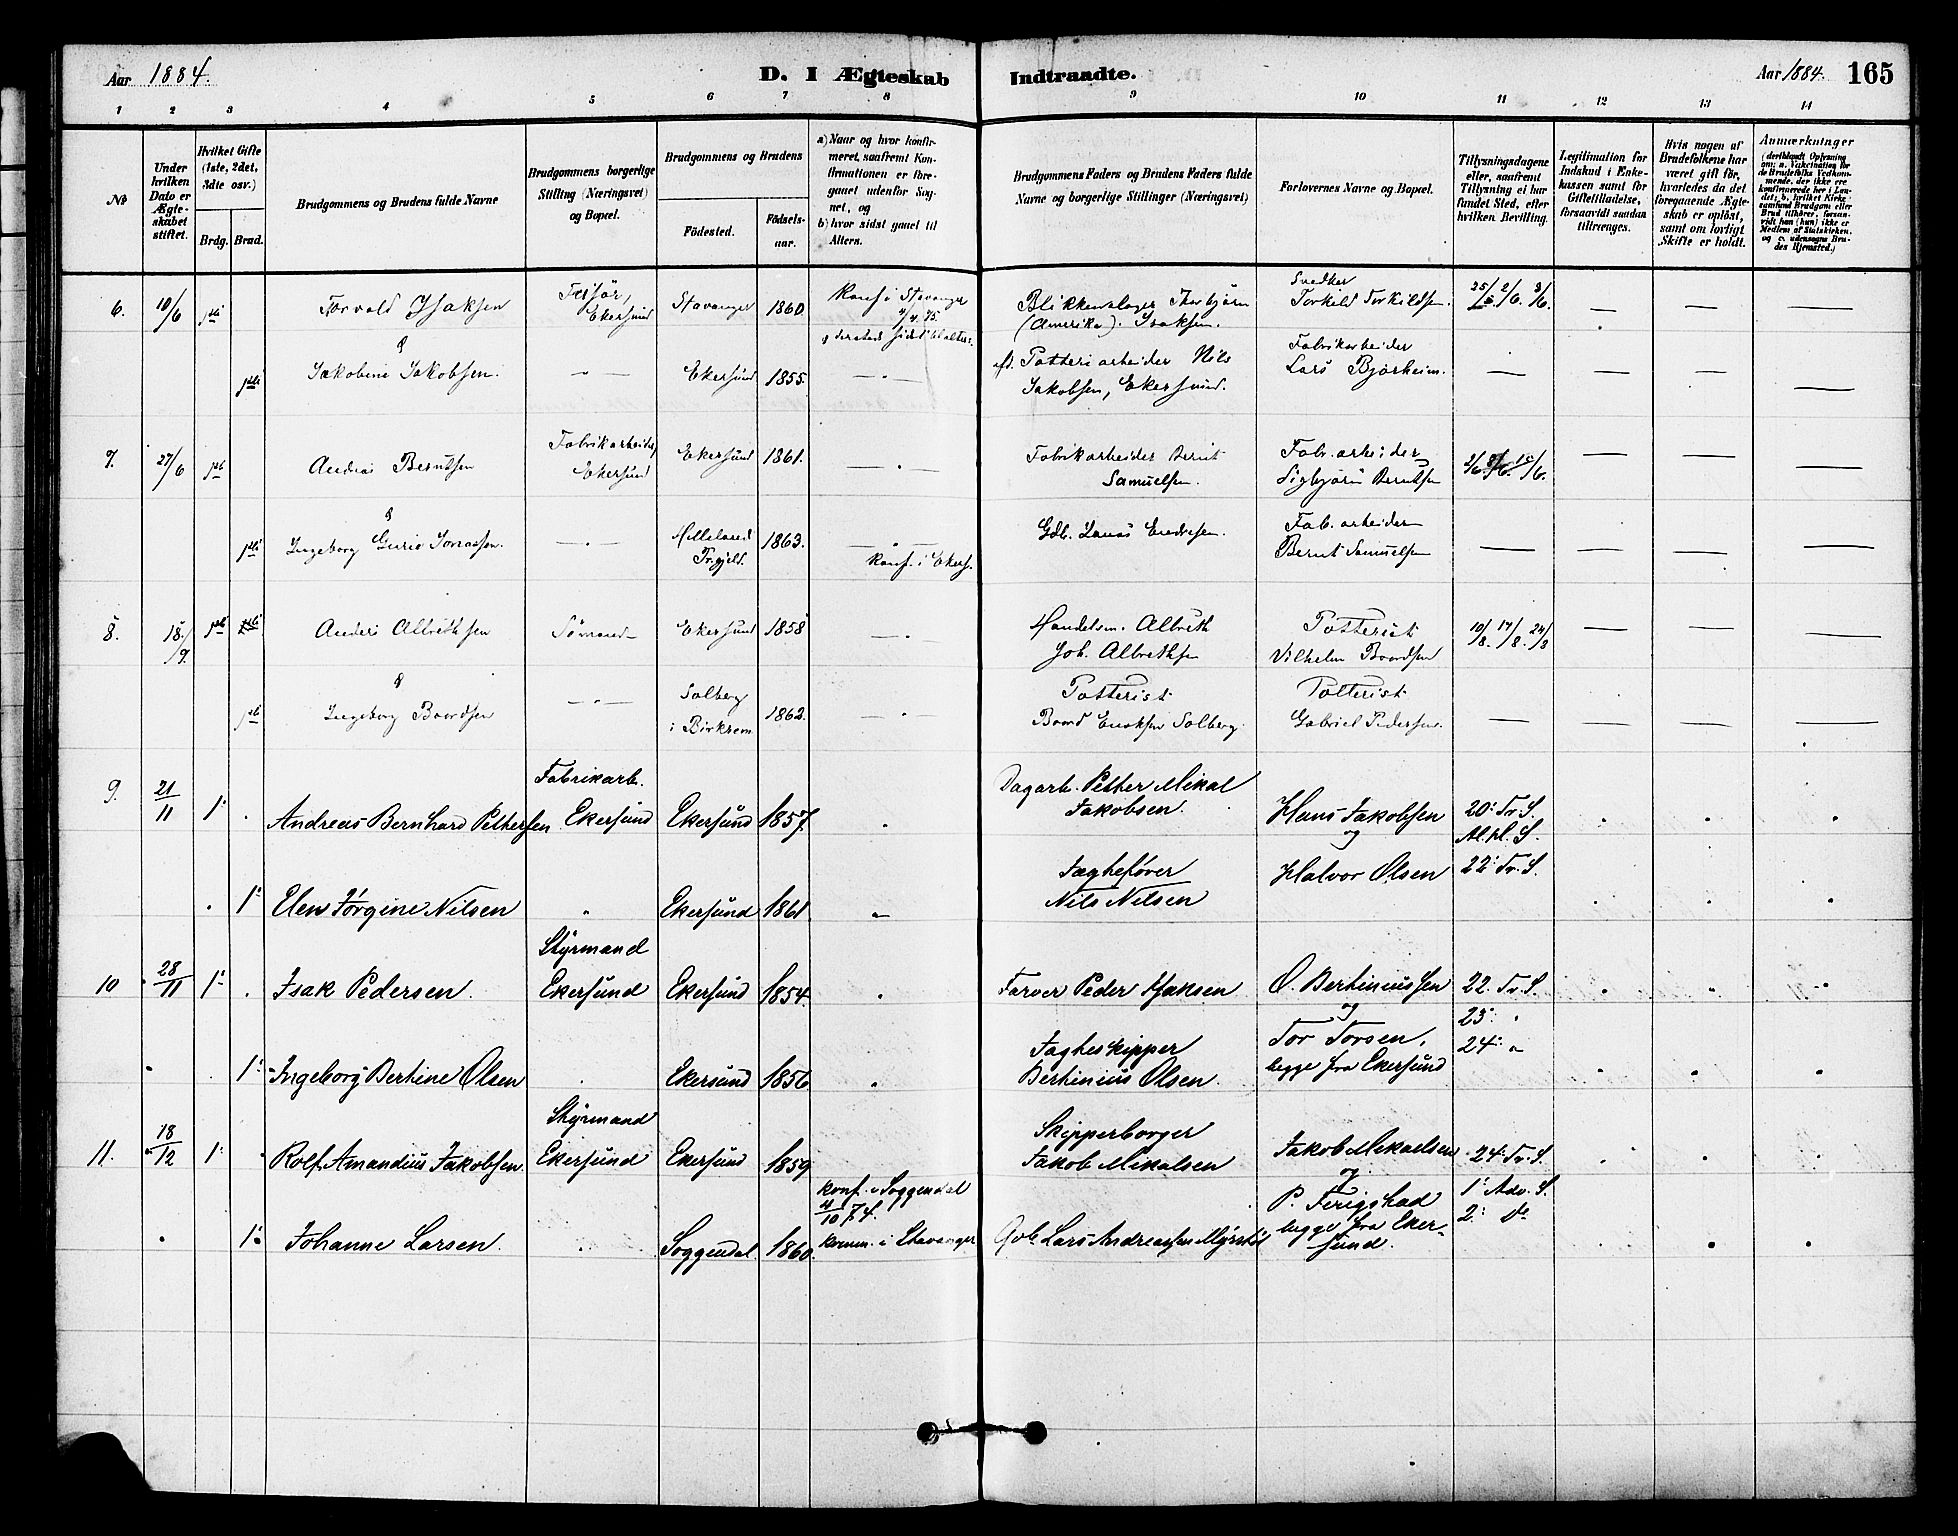 Aar 1884.
D. I Ægteskab
Indtraadte.
Aar 1884.
165
1 2 3 4 5 6 7 8 9 10 11 12 13 14
No
Under hvilken Dato er Ægteskabet stiftet.
Hvilket Gifte (1ste, 2det, 3die osv.)
Brdg. Brud.
Brudgommens og Brudens fulde Navne
Brudgommens borgerlige Stilling (Næringsvei) og Bopæl.
Brudgommens og Brudens
Födested.
Födselsaar.
a) Naar og hvor konfirmeret, saafremt Konfirmationen er foregaaet udenfor Sognet, og
b) hvor sidst gaaet til Alters.
Brudgommens Faders og Brudens Faders fulde Navne og borgerlige Stillinger (Næringsvei)
Forlovernes Navne og Bopæl.
Tillysningsdagene eller, saafremt Tillysning ei har fundet Sted, efter hvilken Bevilling.
Legitimation for Indskud i Enkekassen samt for Giftetilladelse, forsaavidt saadan tiltrænges.
Hvis nogen af Brudefolkene har været gift för, hvorledes da det foregaaende Ægteskab er oplöst, samt om lovligt Skifte er holdt.
Anmærkninger
(deriblandt Oplysning om: a. Vakcination for de Brudefolks Vedkommende, der ikke ere konfirmerede her i Landet; b. hvilket Kirkesamfund Brudgom eller Brud tilhörer, forsaavidt han (hun) ikke er Medlem af Statskirken, og c. udensogns Brudes Hjemsted.)
6. 10/6 1ste Torvald Isaksen Frisör, Ekersund Stavanger 1860. Konf. i Stavanger 4/4 75. Blikkenslager Thorbjörn (Amerika). Isaksen. Snedker Torkild Torkildsen. 25/5. 2/6. 3/6.
&
1ste Jakobine Jakobsen. Ekersund 1855. Potteriarbeider Nils Jakobsen, Ekersund. Fabrikarbeider Lars Bjørheim.
7. 27/6 1ste Andreas Berntsen Fabrikarbeider Ekersund Ekersund 1861. Fabrikarbeider Bernt Samuelsen. Fab. arbeider Sigbjörn Berntsen
&
1ste Ingeborg Gurie Jonassen. Helleland Prgjeld. 1863. Konf. i Ekers. Gdb. Jonas Endresen. Fab. arbeider Bernt Samuelsen
8. 18/9. 1ste Anders Albrethsen Sømand Ekersund 1858 Handelsm. Albreth Joh. Albrethsen Potterist Vilhelm Boordsen 10/8. 17/8. 24/8
&
1ste Ingeborg Boordsen Solberg i Birkrem 1862. Potterist Boord Enoksen Solberg. Potterist Gabriel Pedersen.
9. 21/11 1: Andreas Bernhard Pethersen Fabrikarb. Ekersund Ekersund 1857. Dagarb. Pether Mikal Jakobsen. Hans Jakobsen og 20: Tr. S. Al. hl. S.
1: Elen Jørgine Nilsen Ekersund 1861 Jagtefører Nils Nilsen Halvor Olsen 22: Tr. S.
10 28/11 1: Isak Pedersen. Styrmand Ekersund Ekersund 1854. Farver Peder Isaksen O. Bertiniussen og 22. Tr. S.
23: "
1: Ingeborg Bertine Olsen Ekersund 1856 Jagteskipper Bertinius Olsen. Tor Torsen, begge fra Ekersund 24: "
11. 18/12 1: Rolf Amandius Jakobsen. Styrmand Ekersund Ekersund 1859 Skipperborger Jakob Mikalsen Jakob Mikaelsen og 24: Tr. S.
1: Johanne Larsen. Soggendal 1860. konf. i Soggendal 4/10 74. komm. i Stavanger Gdb. Lars Andreassen Myrstöl P. Ferigstad begge fra Ekersund. 1: Adv. S. 2: do